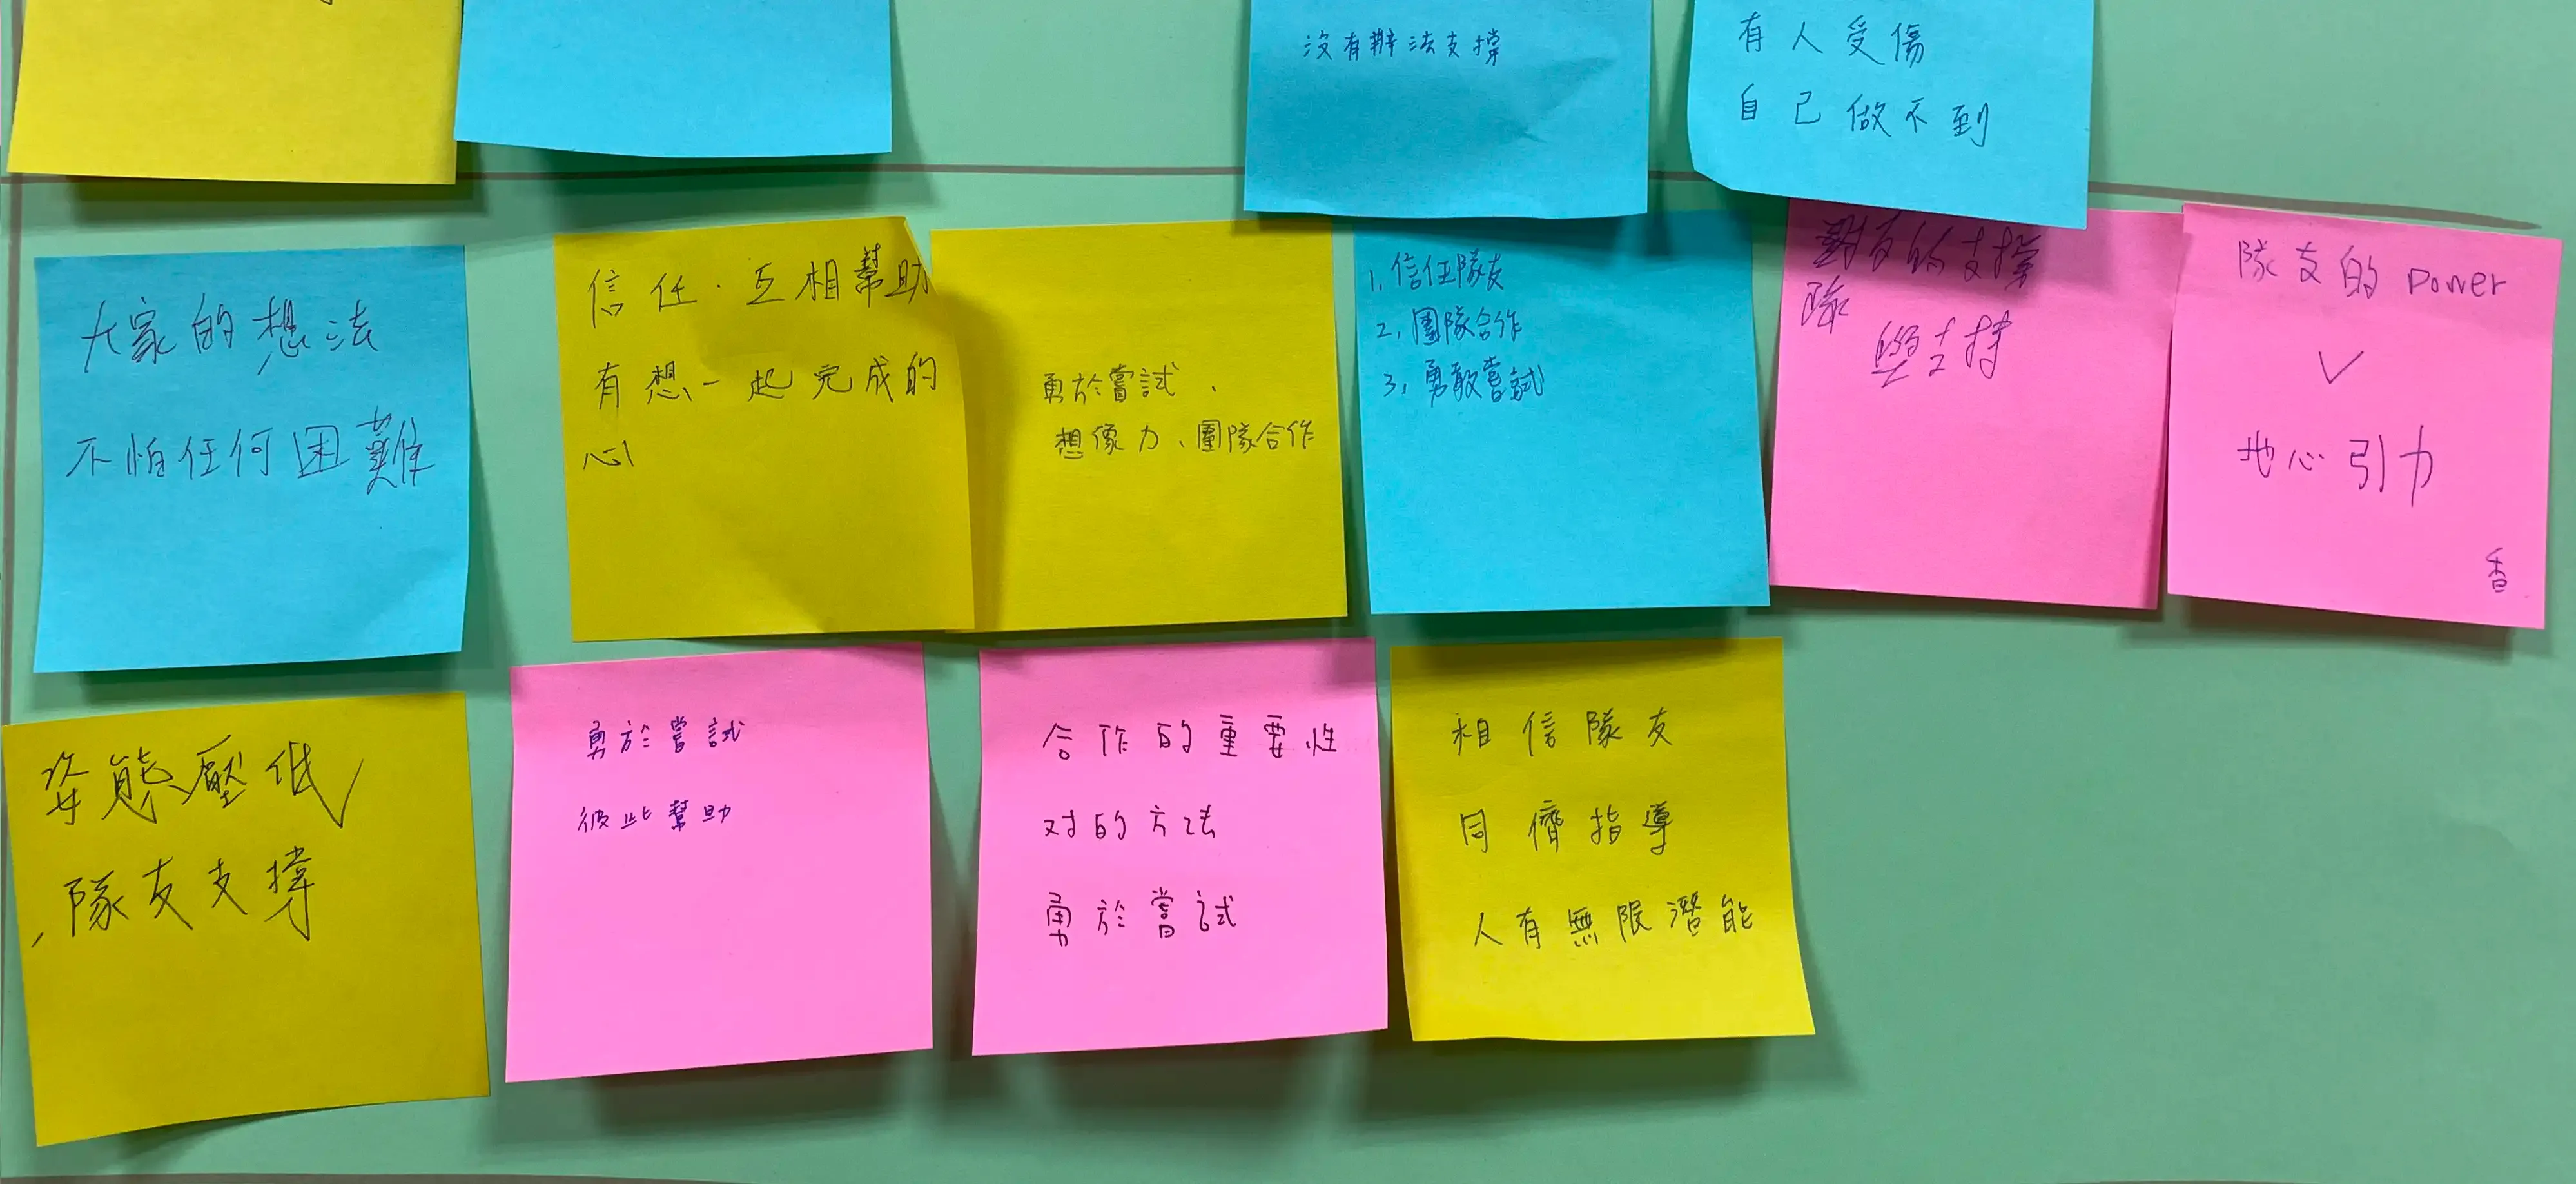 沒有辦法支撐
有人受傷
自己做不到
大家的想法
不怕任何困難
信任．互相幫助
有想一起完成的
心
勇於嘗試、
想像力、團隊合作
1. 信任隊友
2. 團隊合作
3. 勇敢嘗試
友的支撐
隊
與支持
隊友的 power
地心引力
香
姿態壓低
隊友支撐
勇於嘗試
彼此幫助
合作的重要性
对的方法
勇於嘗試
相信隊友
同儕指導
人有無限潛能